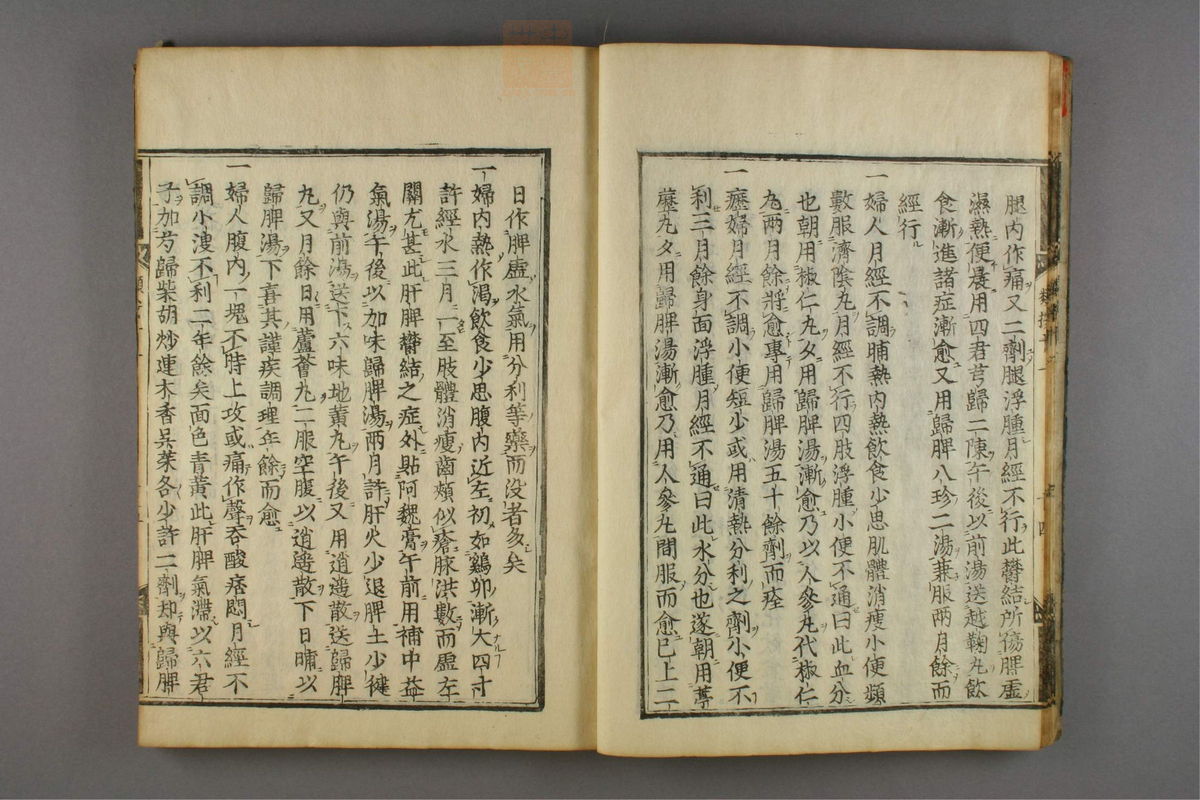 腿内作痛又二劑腿浮腫月經不行此欝結所傷脾虚
濕熱便晨用四君芎歸二陳午後以前湯送越鞠丸飲
食漸進諸症漸愈又用歸脾八珍二湯兼服兩月餘而
經行
一婦人月經不調晡熱内熱飲食少思肌體消瘦小便頻
數服濟陰丸月經不行四肢浮腫小便不通曰此血分
也朝用椒仁丸夕用歸脾湯漸愈乃以人參丸代椒仁
丸兩月餘將愈專用歸脾湯五十餘劑而痊
一嫠婦月經不調小便短少或用清熱分利之劑小便不
利三月餘身面浮腫月經不通曰此水分也遂朝用葶
藶丸夕用歸脾湯漸愈乃用人參丸間服而愈已上二
日作脾虚水氣用分利等藥而没者多矣
一婦内熱作渴飲食少思腹内近左初如鷄卵漸大四寸
許經水三月一至肢體消瘦齒頰似瘡脉洪數而虚左
關尤甚此肝脾欝結之症外貼阿魏膏午前用補中益
氣湯午後以加味歸脾湯兩月許肝火少退脾土少健
仍與前湯送下六味地黄丸午後又用逍遥散送歸脾
丸又月餘日用蘆薈丸二服空腹以逍遥散下日晡以
歸脾湯下喜其謹疾調理年餘而愈
一婦人腹内一塊不時上攻或痛作聲吞酸痞悶月經不
調小溲不利二年餘矣面色青黄此肝脾氣滯以六君
子加芎歸柴胡炒連木香吳茱各少許二劑却與歸脾